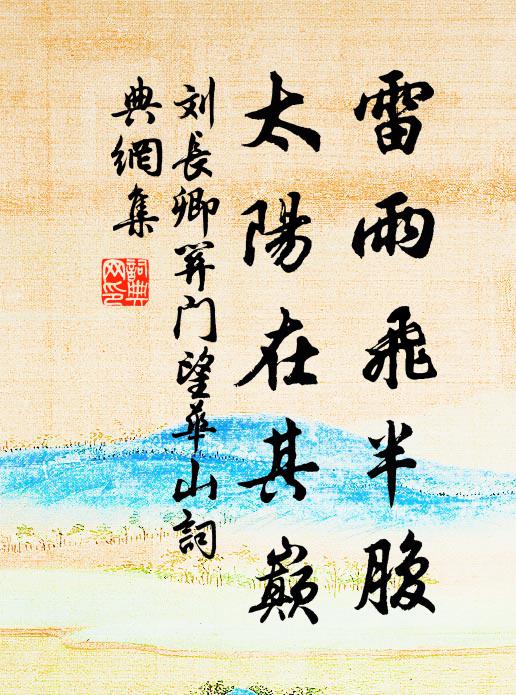 雷雨飛半腹
太陽在其巔
刘長卿関門望華山詞
典網集
詞典
网印